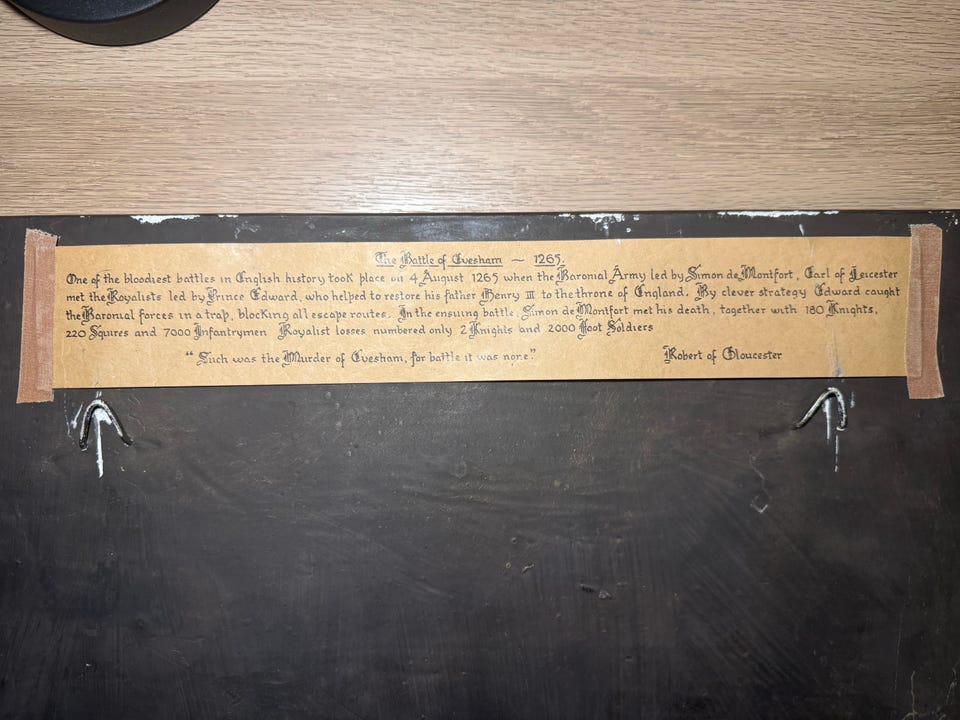 The Battle of Evesham ~ 1265.
One of the bloodiest battles in English history took place on 4 August 1265 when the Baronial Army led by Simon de Montfort, Earl of Leicester
met the Royalists led by Prince Edward, who helped to restore his father Henry III to the throne of England. By clever strategy Edward caught
the Baronial forces in a trap, blocking all escape routes. In the ensuing battle, Simon de Montfort met his death, together with 180 Knights,
220 Squires and 7000 Infantrymen Royalist losses numbered only 2 Knights and 2000 Foot Soldiers
"Such was the Murder of Evesham, for battle it was none." Robert of Gloucester